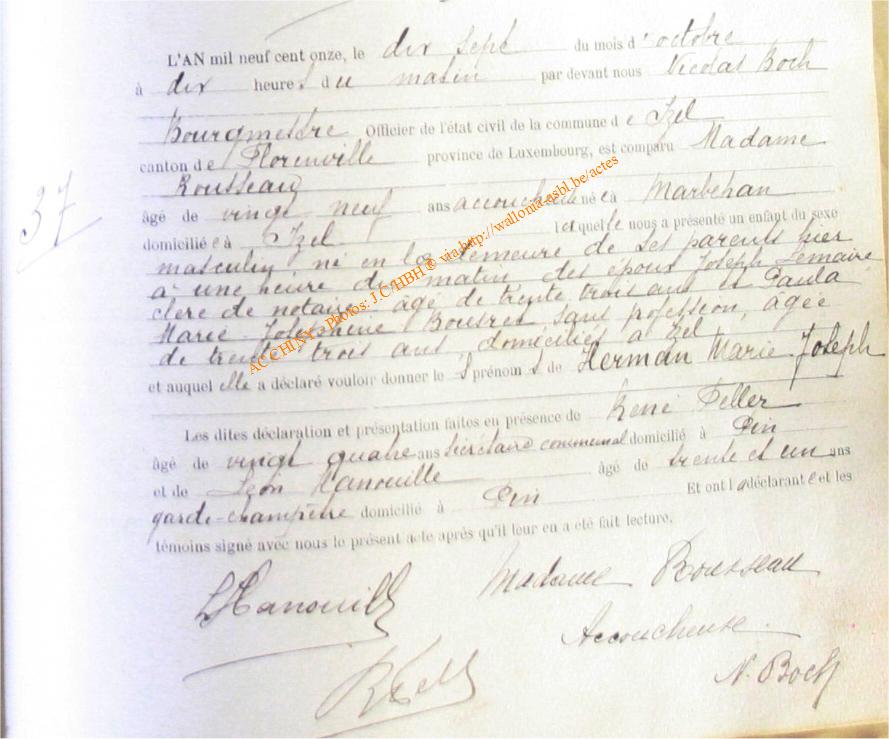 L'AN mil neuf cent onze, le dix sept du mois d'octobre
à dix heures du matin par devant nous Nicolas Boch
Bourgmestre Officier de l'état civil de la commune de Izel
canton de Florenville province de Luxembourg, est comparu Madame
Rousseau
âgé de vingt neuf ans accoucheuse née à Marbehan
domiciliée à Izel laquelle nous a présenté un enfant du sexe
masculin né en la demeure de ses parents hier
à une heure du matin des époux Joseph Lemaire
clerc de notaire âgé de trente trois ans et Paula
Marie Joséphine sans profession, âgée
de trente trois ans, domiciliés à Izel
et auquel elle a déclaré vouloir donner les prénoms de Herman Marie Joseph
37
Les dites déclaration et présentation faites en présence de René
âgé de vingt quatre ans secrétaire communal domicilié à Pin
et de Léon Hanouille âgé de trente et un ans
garde-champêtre domicilié à Pin Et ont la déclarante et les
témoins signé avec nous le présent acte après qu'il leur en a été fait lecture.
LHanouille
Madame Rousseau
Accoucheuse
N. Boch
ACCHINY - Photos: J.C/HBH © via http://wallonia.asbl.be/actes